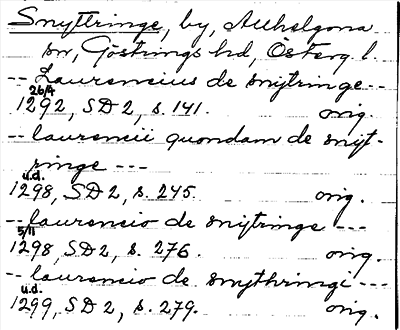 Snyttringe, by, Allhelgona
sn, Göstrings hd, Österg l.
-- Laurencius de snytringe --
26/4
1292, SD 2, s. 141. orig.
-- laurencii quondam de snyt-
ringe ---
u.d.
1298, SD 2, s. 245. orig.
-- laurencio de snytringe ---
5/11
1298, SD 2, s. 276. orig.
-- laurencio de snythringi ---
u.d.
1299, SD 2, s. 279. orig.